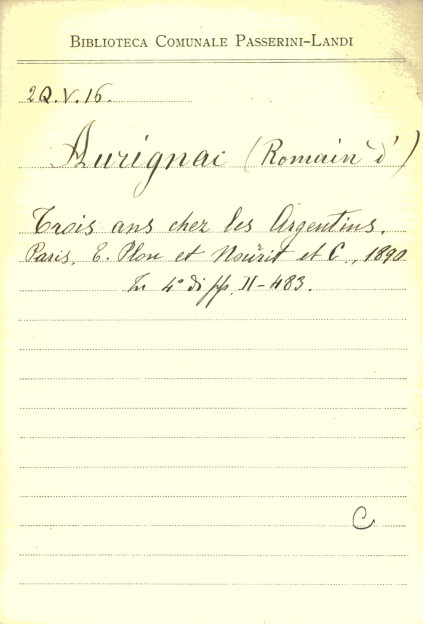 BIBLIOTECA COMUNALE PASSERINI-LANDI
2Q.V.16.
Aurignac (Romain d')
Trois ans chez les Argentins.
Paris, E. Plon et Noürit et C., 1890
In 4° di pp. II-483.
C